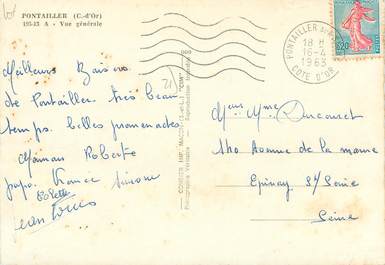 PONTAILLER (C.-d'Or)
195-13 A - Vue générale
Meilleurs Baisers
de Pontailler. très beau
temps. belles promenades
Maman Roberte
papa. France Simone
Colette
Jean Louis
21
COMBIER IMP. MACON (S.-et-L.) "CIM"
Photographie Véritable - Reproduction Interdite
PONTAILLER
18 H
16-4
1963
COTE D'OR
0,20
Mr et Mme Ducouret
140 Avenue de la marne
Epinay S/ Seine
Seine